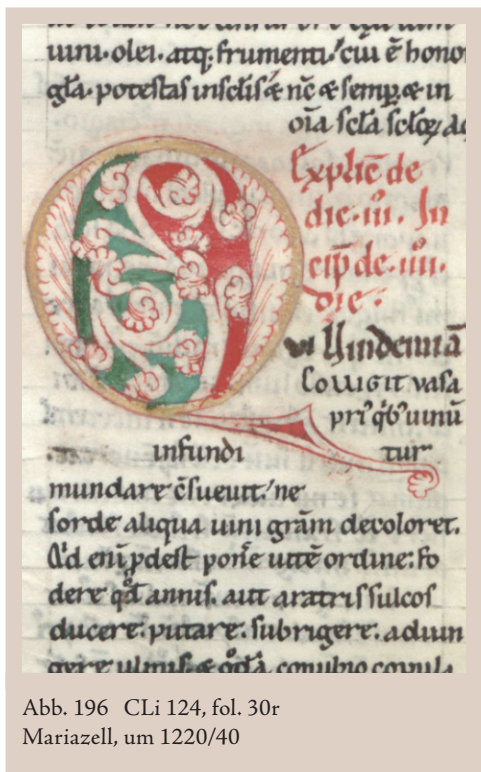 uini. olei. atq; frumenti. cui ē hono
gl̄a. potestas insclis & nc̄ & semp. & in
oīa scl̄a scloꝝ. a
Explic̄ de
die. iii. In
cip̄ de. iiii.
die.
Q
ui Uindemiā
colligit uasa
pri' qb' uinū
infundi tur
mundare c̄sueuit. ne
sorde aliqua uini grām decoloret.
Qd eni pdest pone uite ordine: fo
dere qđ annis. aut aratris sulcos
ducere: putare. subrigere. adiun
gere ulmis. & qđā conubio
Abb. 196 CLi 124, fol. 30r
Mariazell, um 1220/40